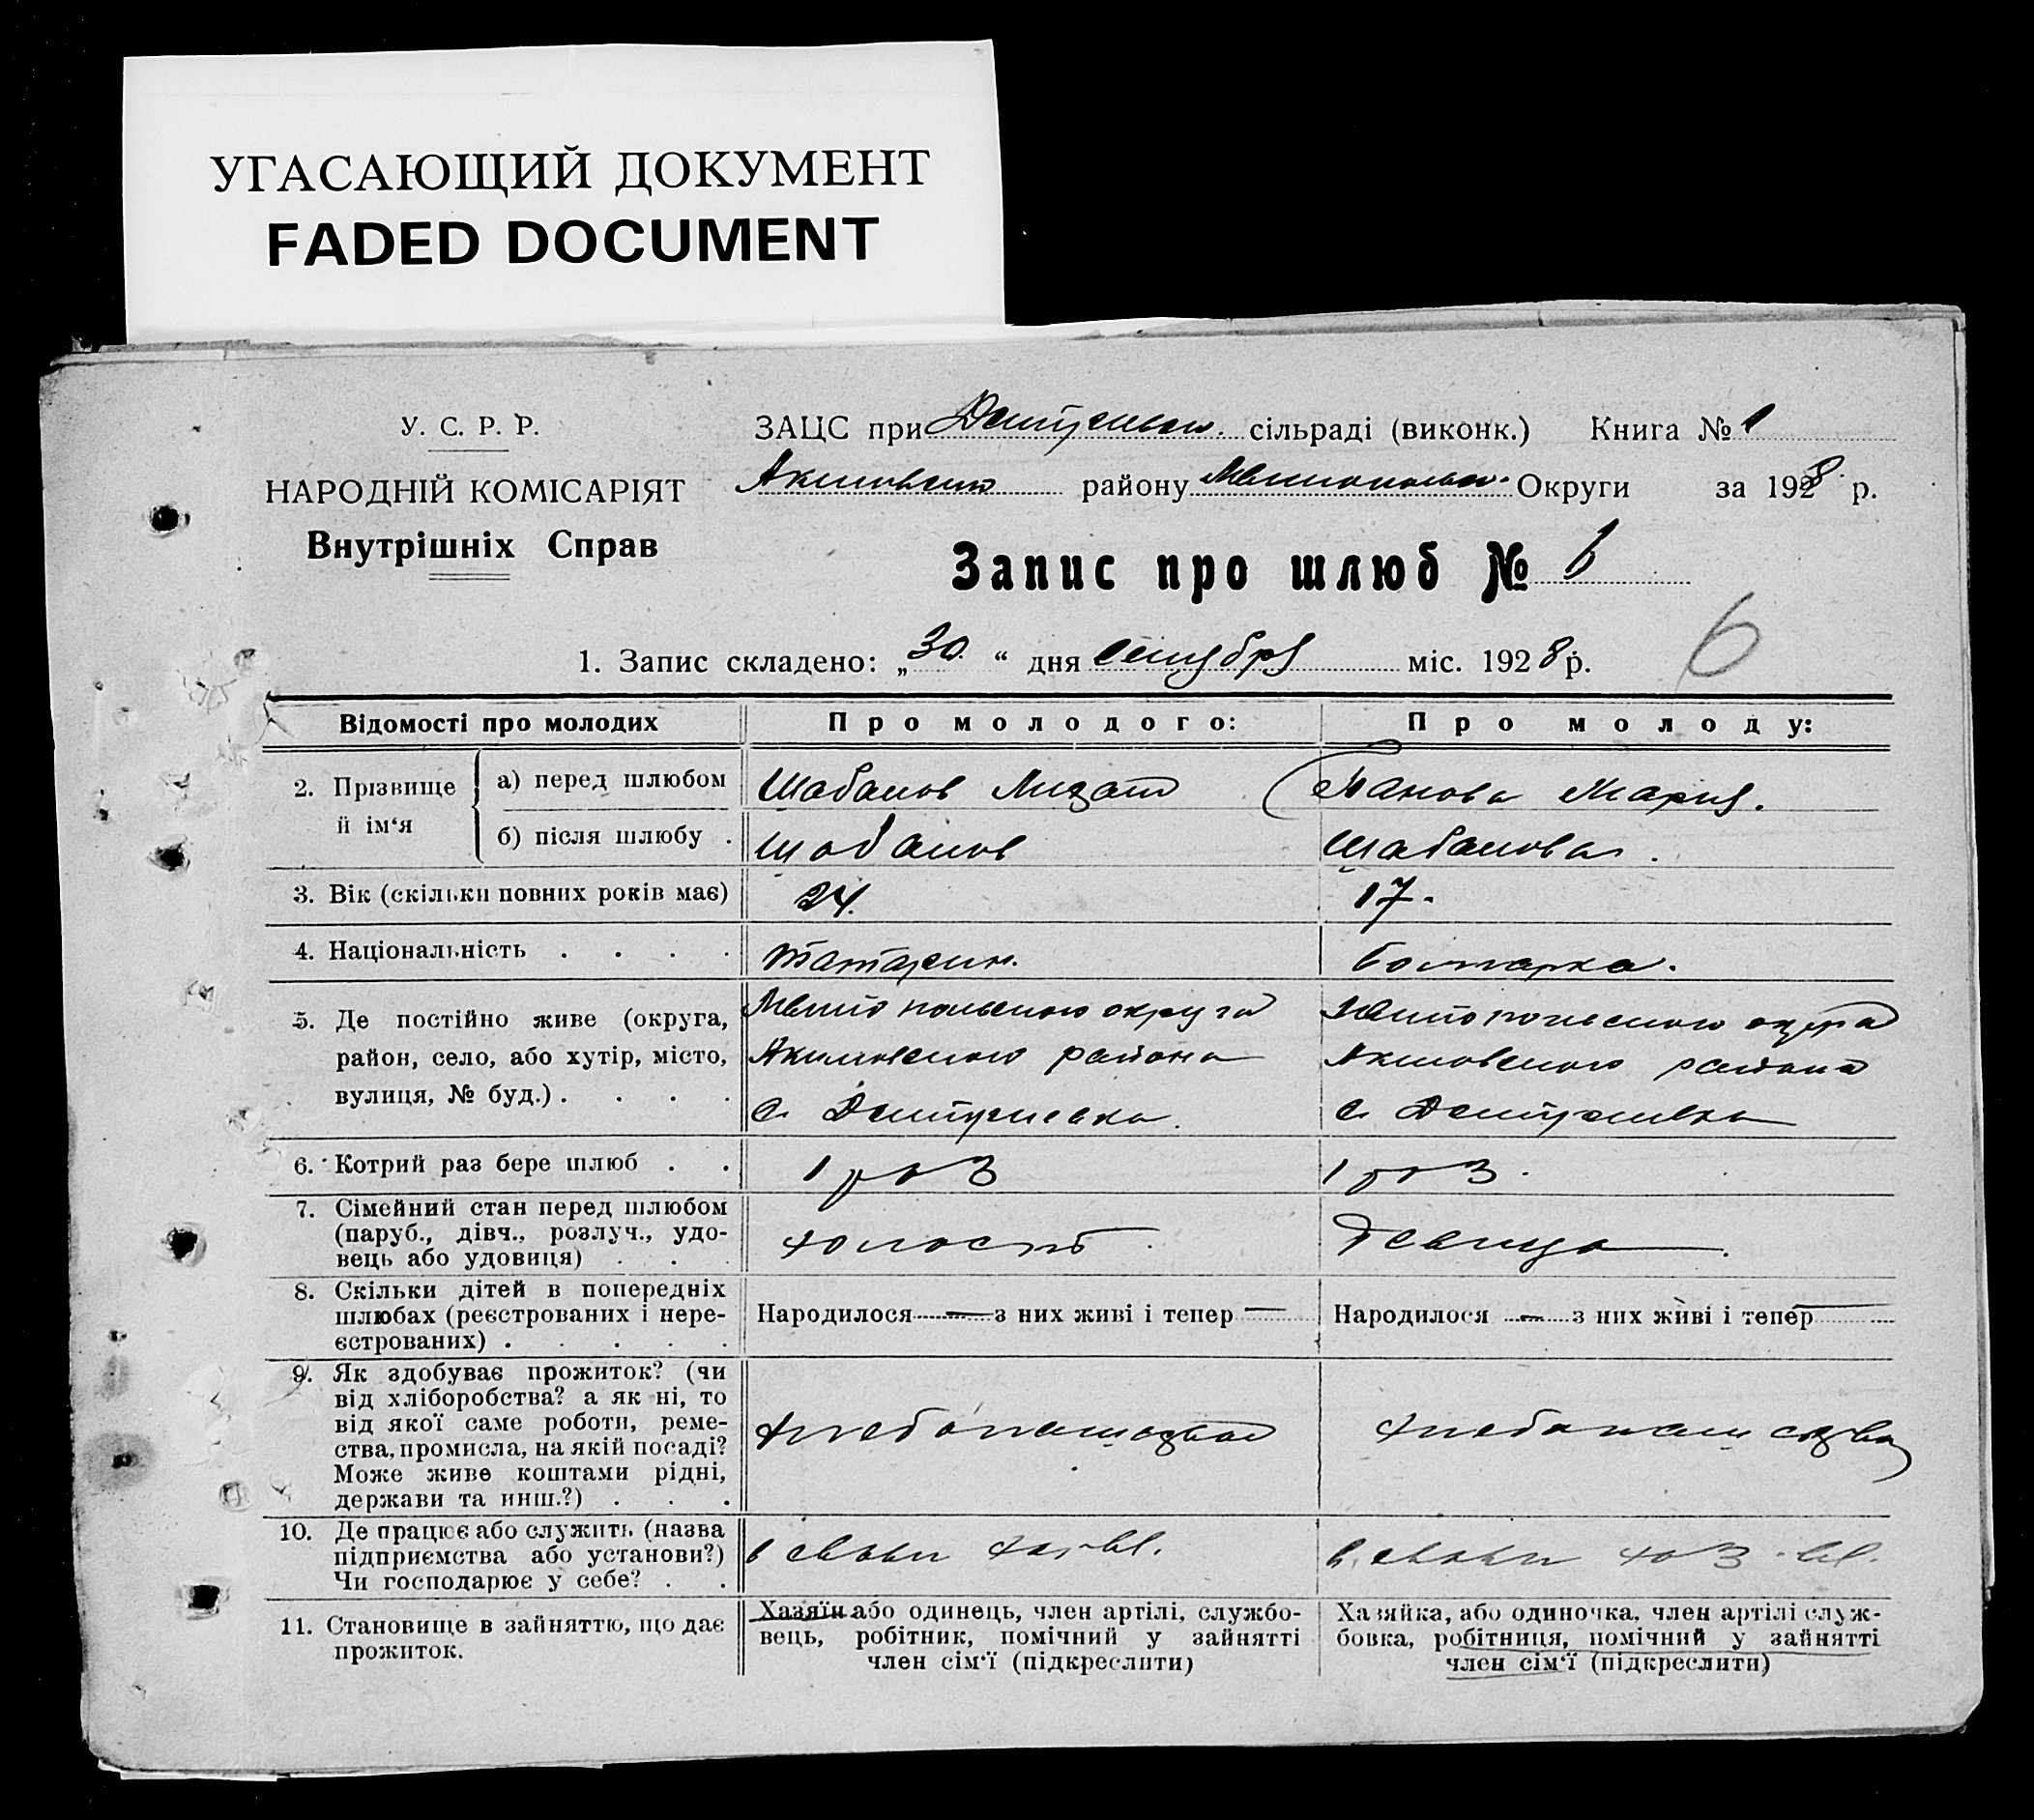 УГАСАЮЩИЙ ДОКУМЕНТ
FADED DOCUMENT
У. С. Р. Р.
НАРОДНІЙ КОМІСАРІЯТ
Внутрішніх Справ
ЗАЦС при сільраді (виконк.) Книга № 1
району Округи за 1928 р.
Запис про шлюб № 6
6
1. Запис складено: „30“ дня сентября міс. 1928 р.
Відомості про молодих
Про молодого:
Про молоду:
2. Прізвище й ім‘я
а) перед шлюбом
Шабанов
Панова Мария.
б) після шлюбу .
Шабанов
Шабанова.
3. Вік (скільки повних років має)
24.
17.
4. Національність . . . .
татарин.
болгарка.
5. Де постійно живе (округа,
район, село, або хутір, місто,
вулиця, № буд.) . . . .
Мелитопольского округа
Акимовского района
с. Дмитриевка.
Мелитопольского округа
Акимовского района
с. Дмитриевка
6. Котрий раз бере шлюб . .
1 раз
1 раз.
7. Сімейний стан перед шлюбом
(паруб., дівч., розлуч., удо-
вець або удовиця) . . .
холост.
Девица.
8. Скільки дітей в попередніх
шлюбах (реєстрованих і нере-
єстрованих) . . . . .
Народилося — з них живі і тепер —
Народилося — з них живі і тепер —
9. Як здобуває прожиток? (чи
від хліборобства? а як ні, то
від якої саме роботи, реме-
ства, промисла, на якій посаді?
Може живе коштами рідні,
держави та инш.?) . . .
хлебопашество
хлебопашество
10. Де працює або служить (назва
підприємства або установи?)
Чи господарює у себе? . .
в своем хоз-ве.
в своем хоз-ве.
11. Становище в зайняттю, що дає
прожиток.
Хазяїн або одинець, член артілі, службо-
вець, робітник, помічний у зайнятті
член сім‘ї (підкреслити)
Хазяйка, або одиночка, член артілі служ-
бовка, робітниця, помічний у зайнятті
член сім‘ї (підкреслити)